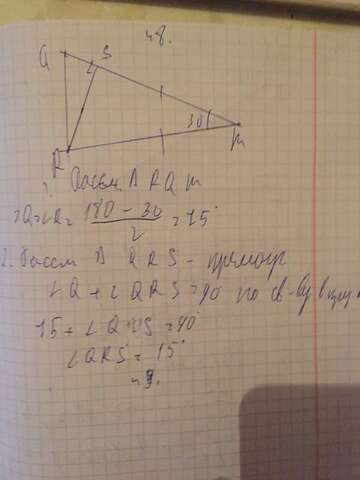 48.
Q S
30 M
R
1. Рассм. Δ RQM
∠Q=∠R= 180 - 30 / 2 = 75°
2. Рассм Δ QRS - прямоуг
∠Q + ∠QRS = 90° по св-ву в прям.
75 + ∠QRS = 90°
∠QRS = 15°